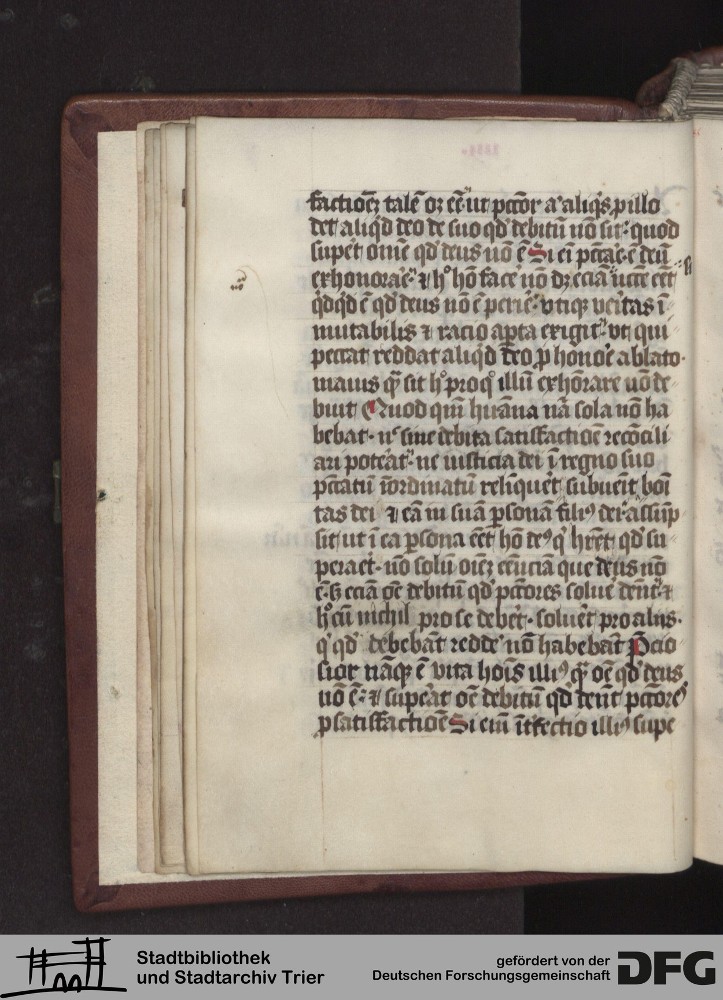 factioēȝ talē oȝ eē ut pctōr aͭ aliq̄s p illo
det aliqd deo de suo qd debitū nō sit quod
supet omē qd deus nō ē Si eī pctāe ē deū
exhonorae ⁊ h° hō face nō dȝ eciā nccē eēt
qdqd ē qd deus nō ē perie vtiqȝ veritas ī
mutabilis ⁊ racio apta exigit ut qui
peccat reddat aliqd deo p honoe ablato
maius qͣ sit h° pro qͦ illū exhōrare nō de
buit Quod qm̄ huāna nā sola nō ha
bebat nͨ sine debita satisfactioē recōcili
ari poteāt ne iusticia dei ī regno suo
pctātū īordinatū relīquet subuēit boī
tas dei ⁊ eā in suā psonā filiꝰ dei assūp
sit ut ī ea psona eēt hō deꝰ qͥ hrēt qd su
peraet nō solū oīeȝ eēnciā que deus nō
ē sȝ eciā oē debitū qd pctōres solue dēnt ⁊
h° cū nichil pro se debet soluet pro aliis
qͥ qd debebāt redde nō habebāt Pcio
sior nāqȝ ē vita hoīs illiꝰ qͣ oē qd deus
nō ē ⁊ supeāt oē debitū qd dēnt pctōrēs
p satisfactioē Si eiī ītfectio illiꝰ supe
Stadtbibliothek
und Stadtarchiv Trier
gefördert von der
Deutschen Forschungsgemeinschaft
DFG